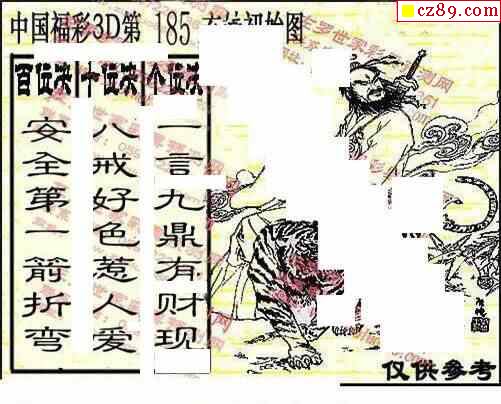 cz89.com
中国福彩3D第 185
百位决 十位决 个位决
安全第一箭折弯
八戒好色惹人爱
一言九鼎有财现
仅供参考